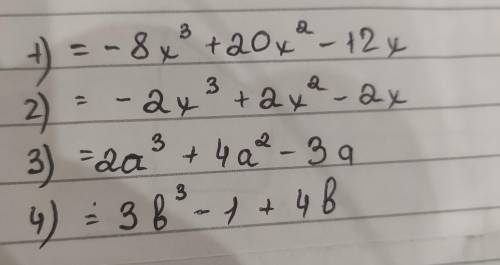 1) = - 8x³ + 20x² - 12x
2) = - 2x³ + 2x² - 2x
3) = 2a³ + 4a² - 3a
4) = 3b³ - 1 + 4b